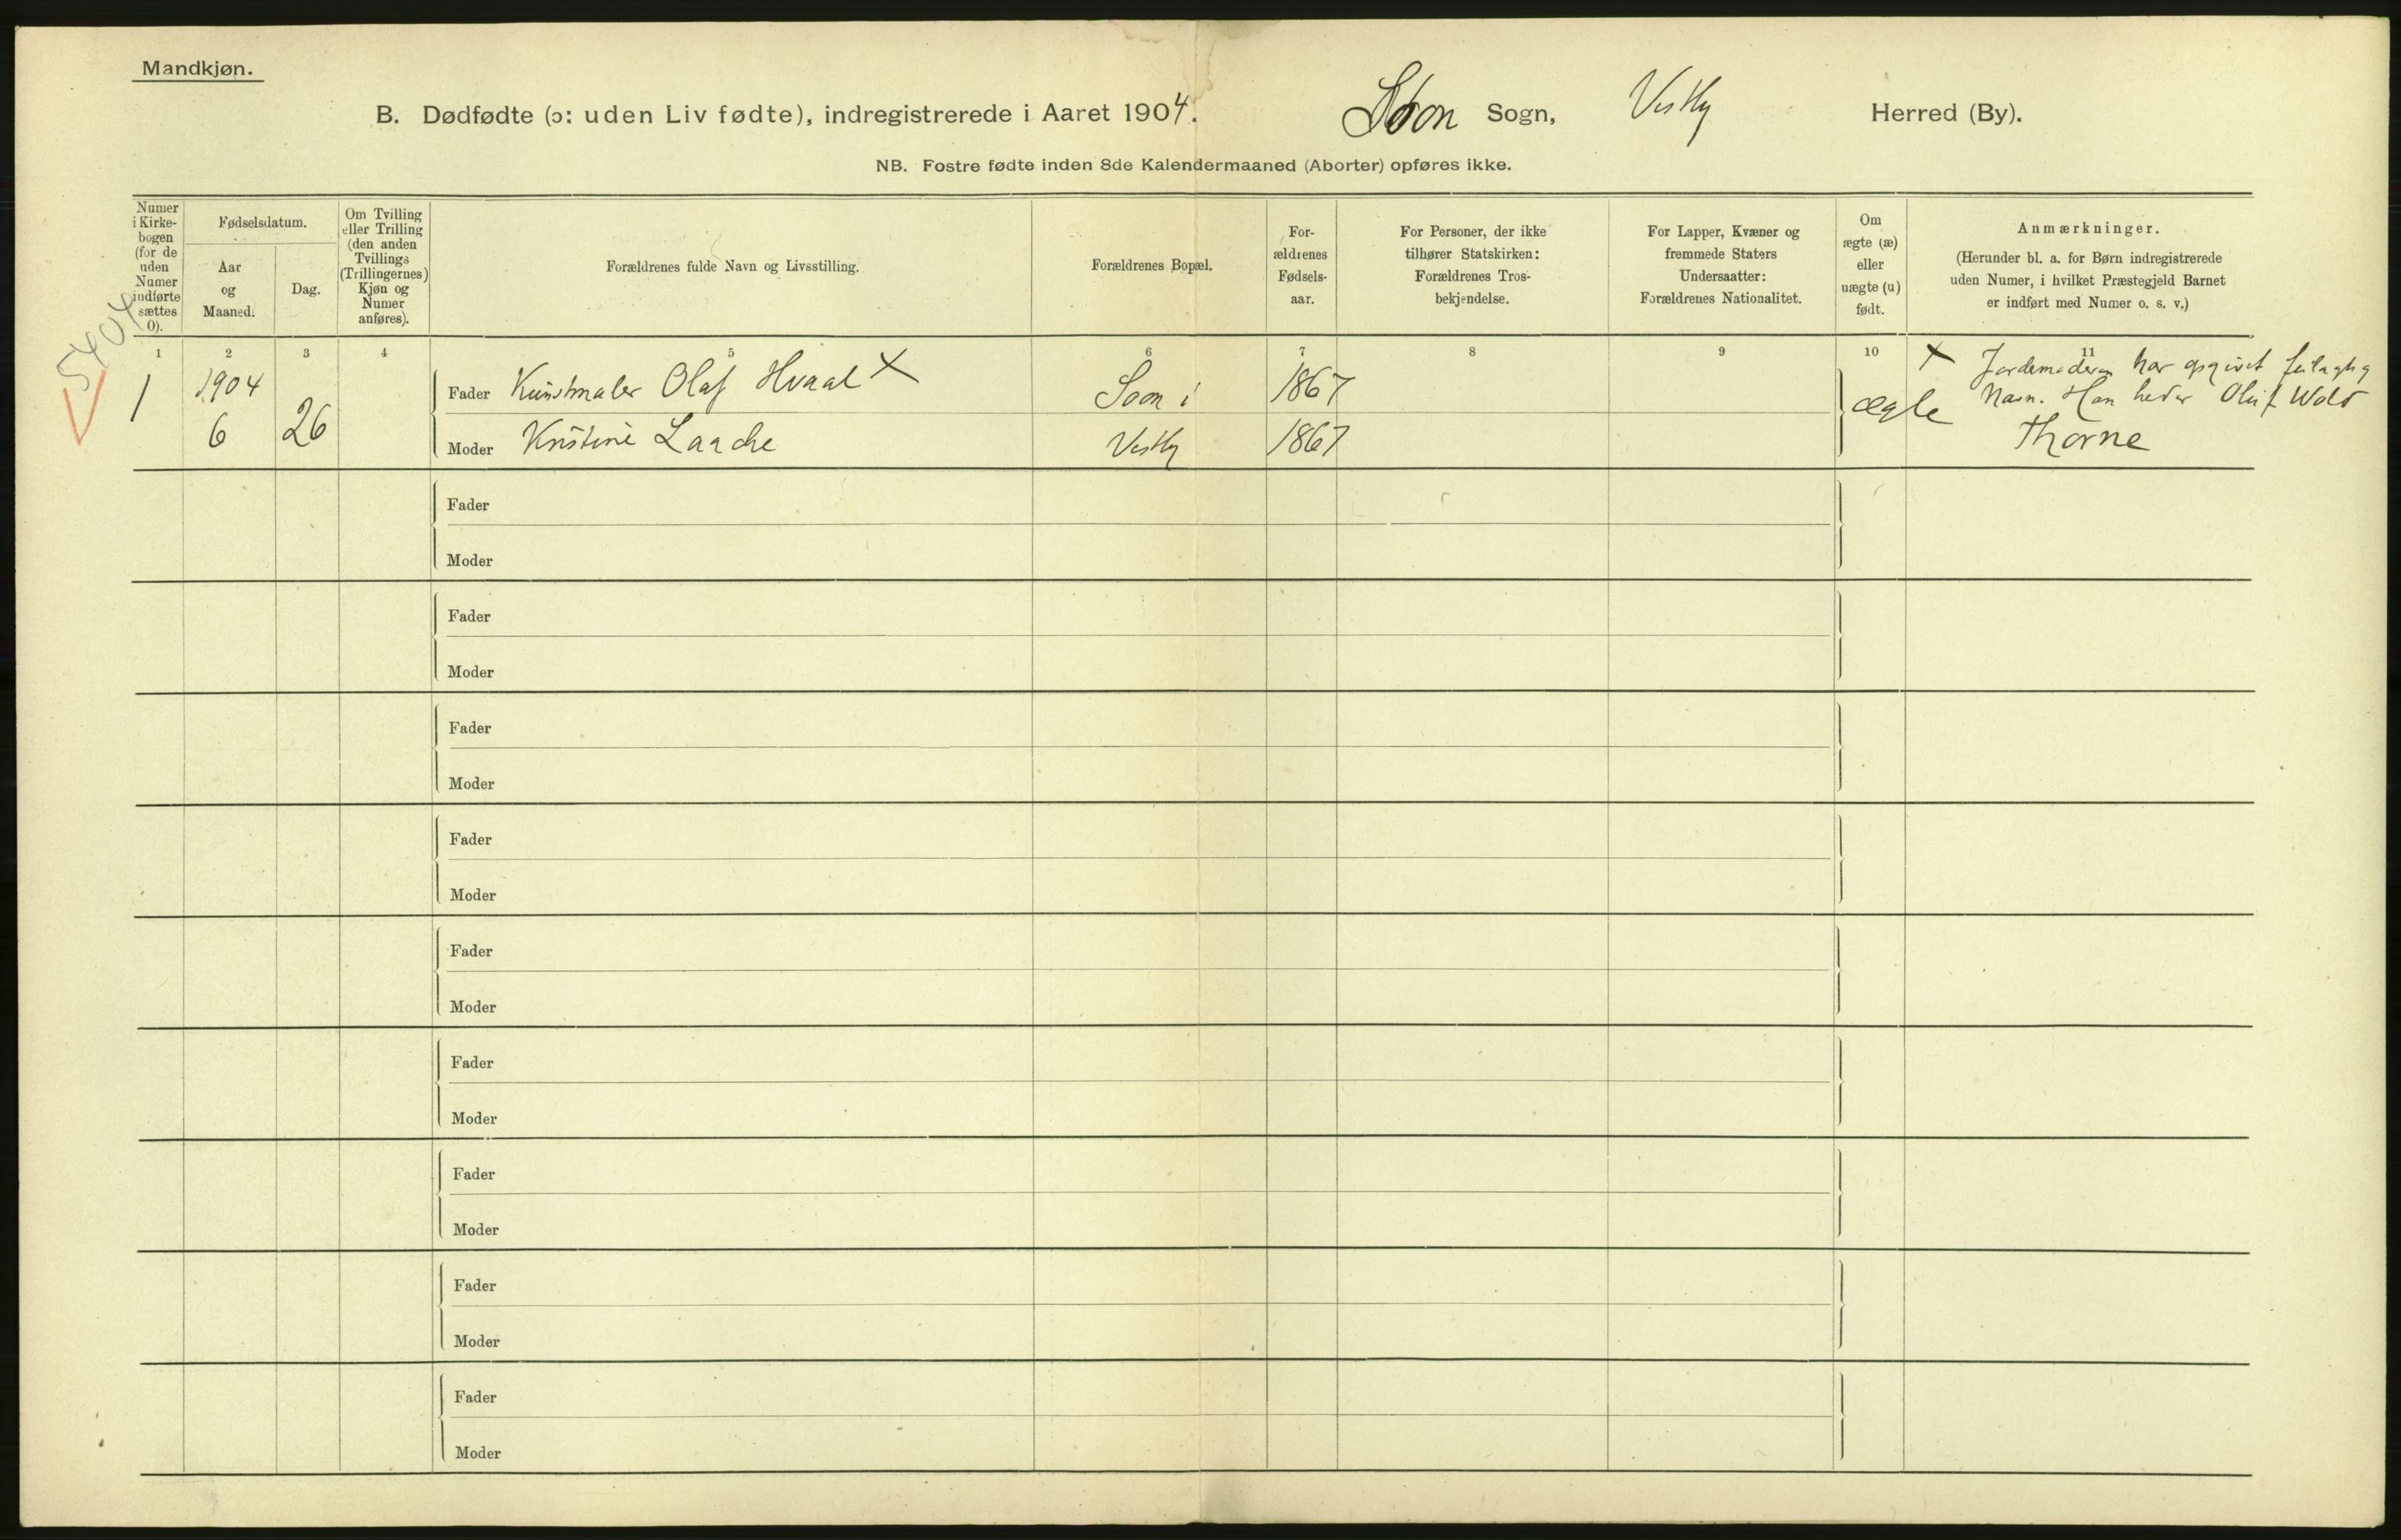 Mandkjøn.
B. Dødfødte (ɔ: uden Liv fødte), indregistrerede i Aaret 1904. Soon Sogn, Vestby Herred (By).
NB. Fostre fødte inden 8de Kalendermaaned (Aborter) opføres ikke.
Numer i Kirke-bogen (for de uden Numer indførte sættes 0).
Fødselsdatum.
Aar og Maaned.
Dag.
Om Tvilling eller Trilling (den anden Tvillings (Trillingernes) Kjøn og Numer anføres).
Forældrenes fulde Navn og Livsstilling.
Forældrenes Bopæl.
For-ældrenes Fødsels-aar.
For Personer, der ikke tilhører Statskirken: Forældrenes Tros-bekjendelse.
For Lapper, Kvæner og fremmede Staters Undersaatter: Forældrenes Nationalitet.
Om ægte (æ) eller uægte (u) født.
Anmærkninger.
(Herunder bl. a. for Børn indregistrerede uden Numer, i hvilket Præstegjeld Barnet er indført med Numer o. s. v.)
1 2 3 4 5 6 7 8 9 10 11
5404
1 1904 6 26
Fader Kunstmaler Olaf Hvaal × Soon i 1867
Moder Kristine Laache Vestby 1867
ægte
× Jordemoderen har opgivet feilagtig
Navn. Han heder Oluf Wold
Thorne
Fader
Moder
Fader
Moder
Fader
Moder
Fader
Moder
Fader
Moder
Fader
Moder
Fader
Moder
Fader
Moder
Fader
Moder